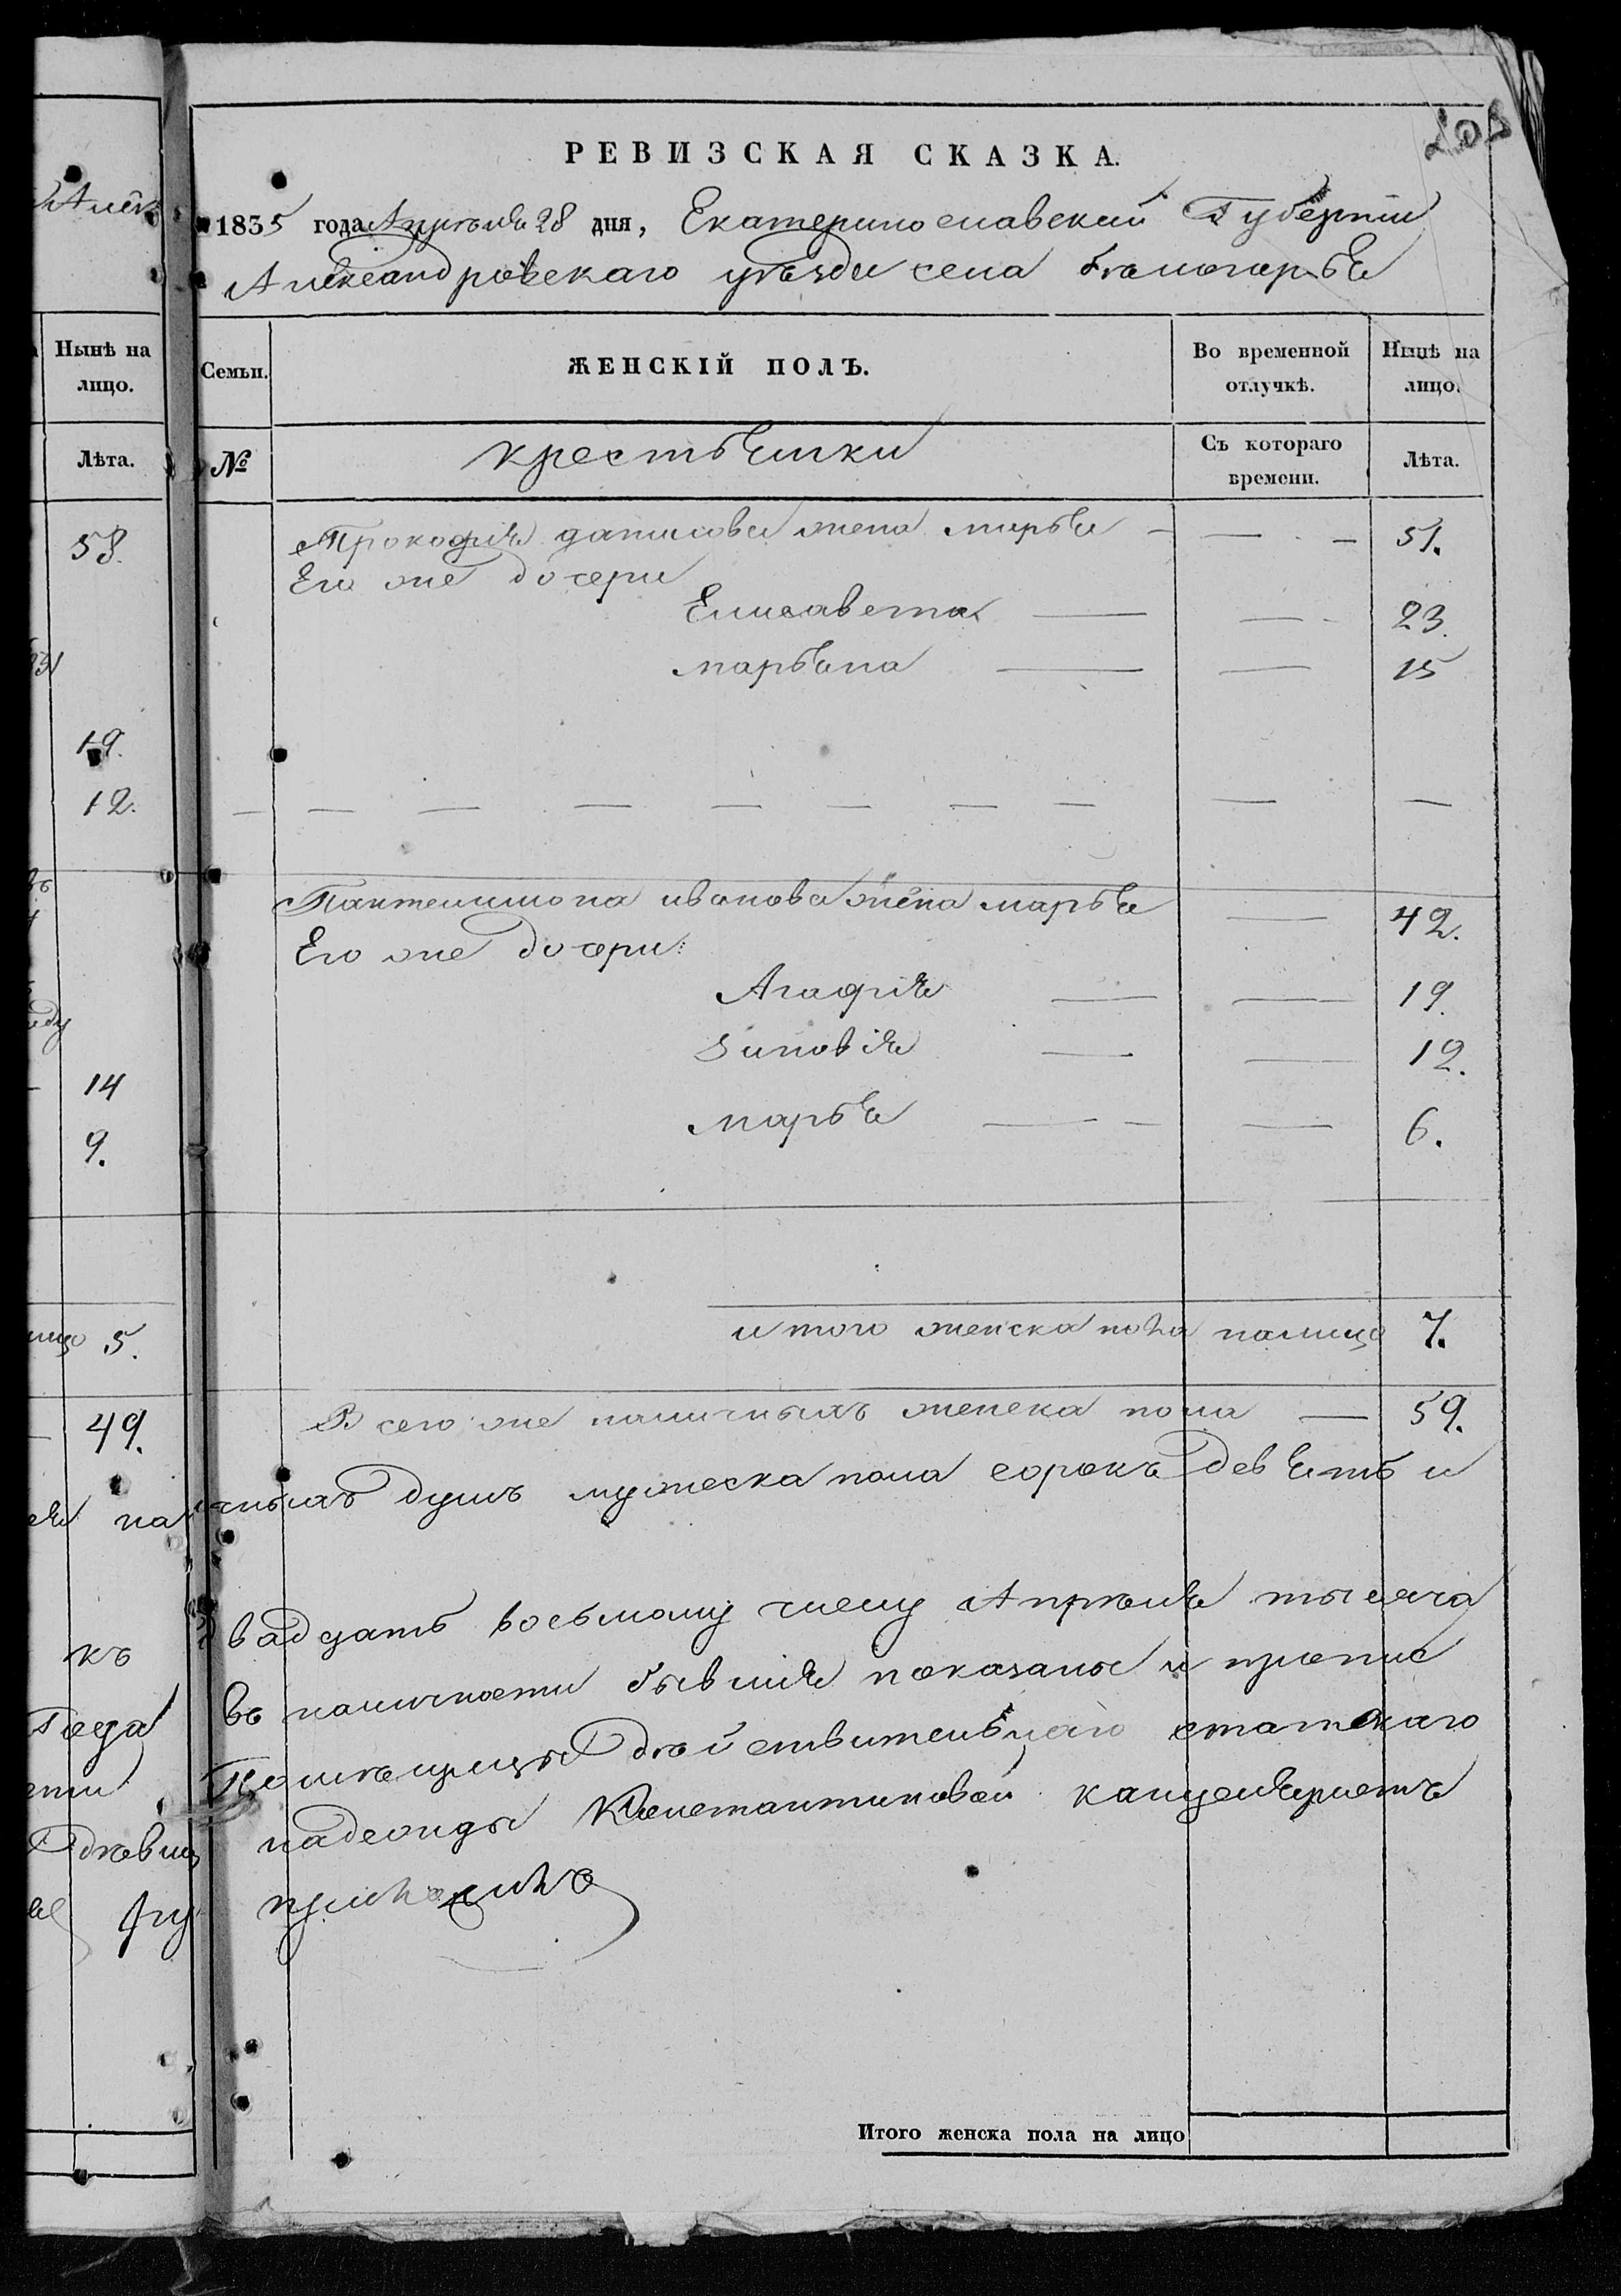 РЕВИЗСКАЯ СКАЗКА.
1835 года Апреля 28 дня, Екатеринославской Губернiи
Александровскаго уѣзда села Бѣлогорья
Нынѣ на лицо.
Семьи.
ЖЕНСКІЙ ПОЛЪ.
Во временной отлучкѣ.
Нынѣ на лицо.
Лѣта.
№
крестьянки
Съ котораго времени.
Лѣта.
58.
Прокофiя данилова жена марья — — — 51.
Его же дочери
Елисавета — — 23.
марьяна — — 15
19.
12. — — — — — — — — — —
Пантелимона иванова жена марья — 42.
Его же дочери:
Агафiя — — 19.
Зиновiя — — 12.
14
марья — — 6.
9.
итого женска пола налицо 7.
лицо 5.
Всего же наличныхъ женска пола — 59.
49.
наличныхъ душъ мужеска пола сорокъ девять и
двадцать восьмому числу Апрѣля тысяча
къ
въ наличности бывшiя показаны и пропис
Года
Помѣщицы Дѣйствительнаго статскаго
надежды Константиновой канцеляристъ
приложилъ
Итого женска пола на лицо